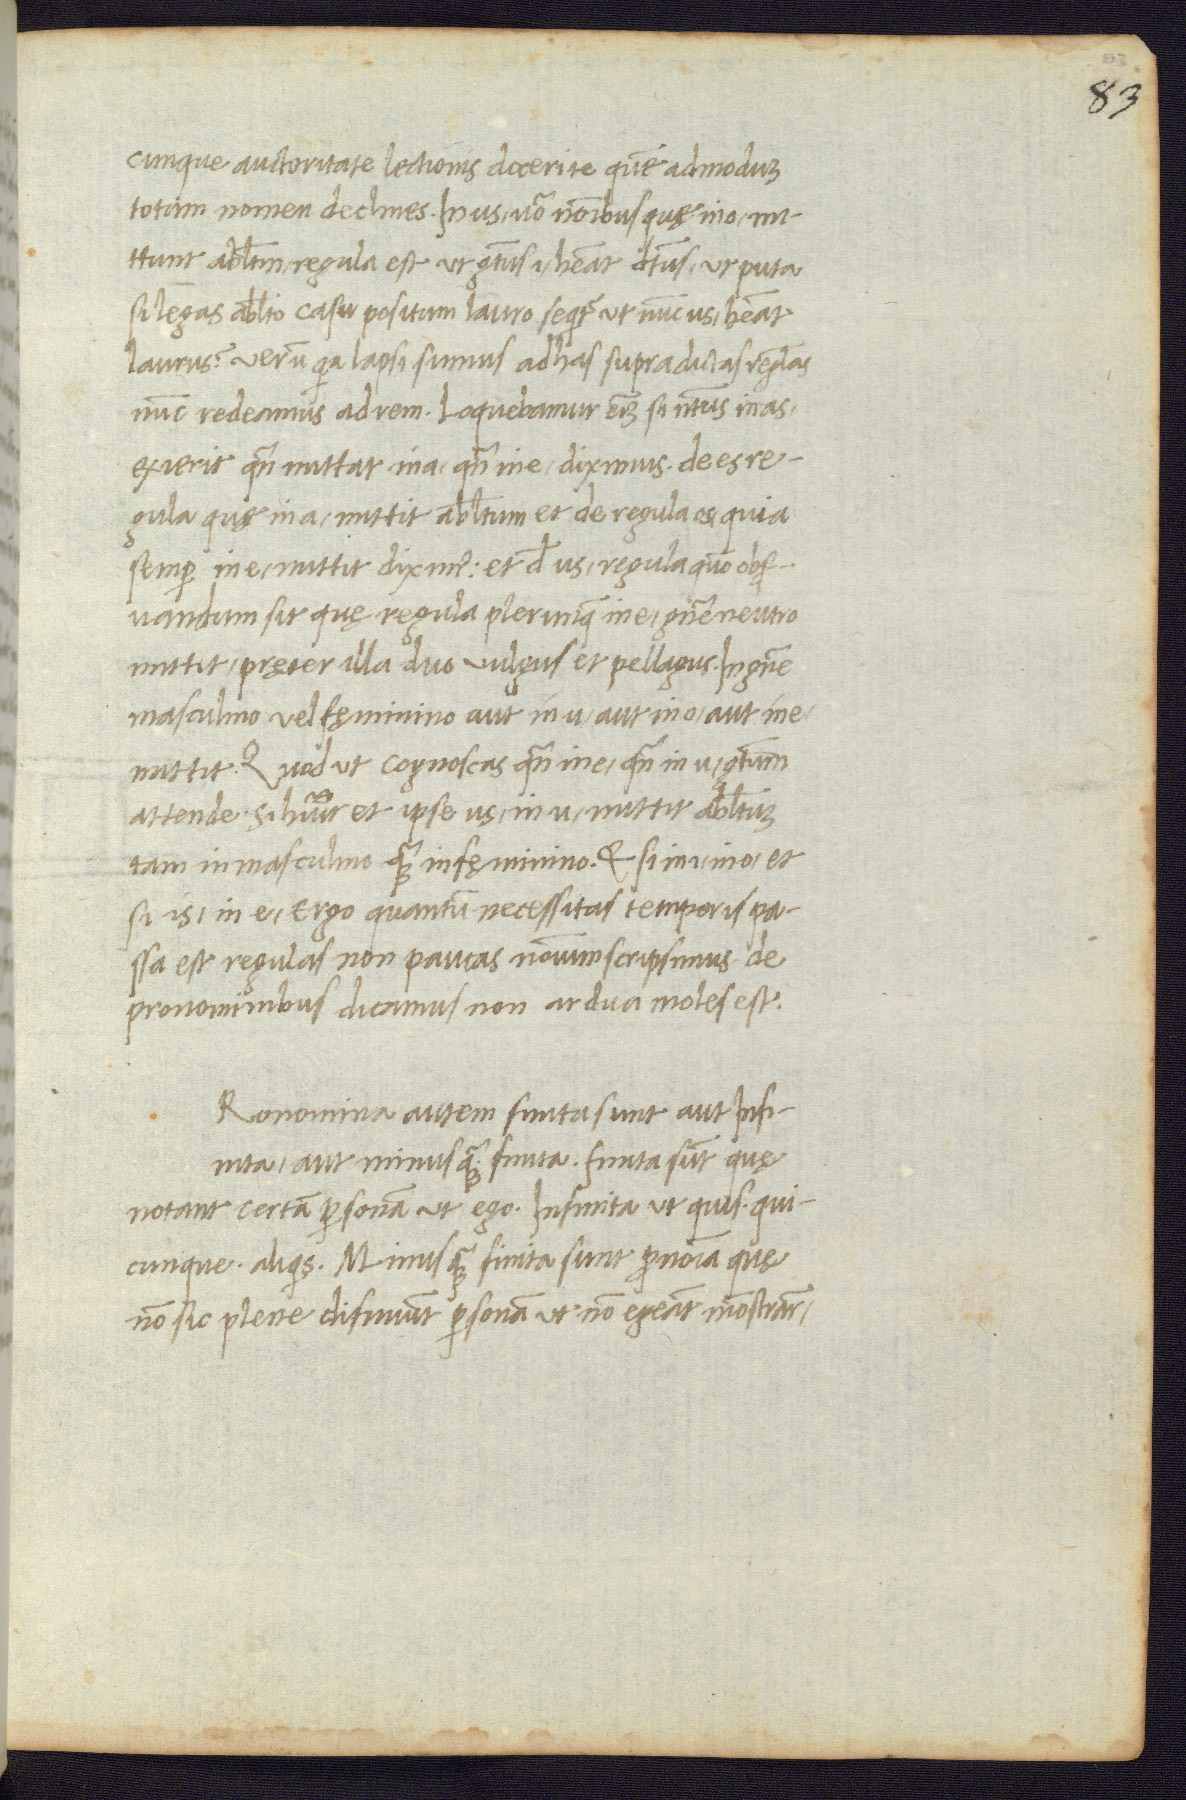 83
cunque auctoritate lectionis docerite quē admoduʒ
totum nomen declines. In us, uō nōibus quę in o, mi-
ttunt abltm, regula est ut gtūs i, hēat dtūs, ut puta
si legas ablto casu positum lauro seqtr ut nūc us, hēat
laurus? verū qa lapsi sumus ad has supradictas regłas
nūc redeamus ad rem. Loquebamur em̄ si ntūs in as,
exierit qn̄ mittat in a, qn̄ in e, diximus. de es re-
gula quę in a, mittit abltum et de regula os, quia
semp in e, mittit dixim9: et d us, regula quō obs-
uandum sit quę regula plerunq in e, gnē neutro
mittit, pręter illa duo vulgus et pellagus. In gnē
masculino vel fęminino aut in u, aut in o, aut in e,
mittit. Quod ut cognoscas qn̄ in e, qn̄ in u, gtūm
attende. Si hūit et ipse us, in u, mittit abltūʒ
tam in masculino qʒ in fęminino. Et si in i, in o, et
si is, in e, Ergo quantū necessitas temporis pa-
ssa est regulas non paucas nōium scripsimus de
pronominibus dicamus non ardua moles est.
Ronomina autem finita sunt aut Infi-
nita, aut minus qʒ finita. Finita sūt quę
notant certā psonā ut ego. Infinita ut quis. qui-
cunque. aliqs. Minus qʒ finita sunt pnoīa quę
nō sic plene difiniūt psonā ut nō egeāt mōstrāt,